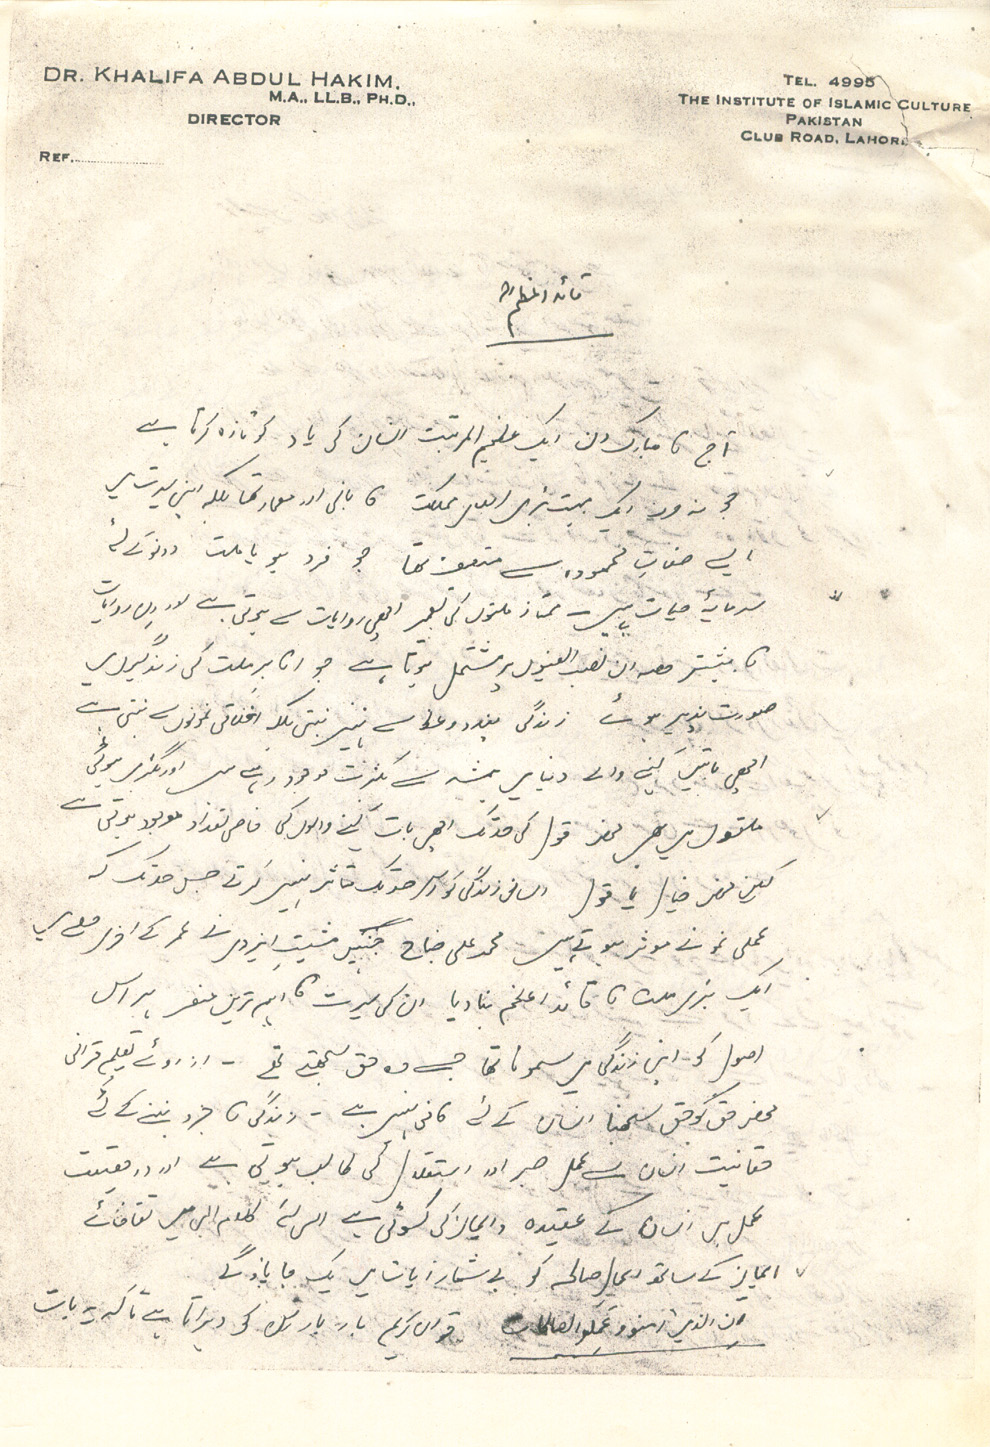 DR. KHALIFA ABDUL HAKIM.
M.A., LL.B., PH.D.,
DIRECTOR
REF.
TEL. 4995
THE INSTITUTE OF ISLAMIC CULTURE
PAKISTAN
CLUB ROAD, LAHORE
قائد اعظمؒ
آج کا مبارک دن ایک عظیم المرتبت انسان کی یاد کو تازہ کرتا ہے
جو نہ صرف ایک بہت بڑی اسلامی مملکت کا بانی اور معمار تھا بلکہ اپنی سیرت میں
ایسے صفاتِ محمودہ سے متصف تھا جو فرد ہو یا ملت دونوں کے لئے
سرمایۂ حیات ہیں ۔ ممتاز ملتوں کی تعمیر اچھی روایات سے ہوتی ہے اور ان روایات
کا بیشتر حصہ ان نصب العینوں پر مشتمل ہوتا ہے جو اکابر ملت کی زندگیوں میں
صورت پذیر ہوئے زندگی پند و وعظ سے نہیں بنتی بلکہ اخلاقی نمونوں سے بنتی ہے
اچھی باتیں کہنے والے دنیا میں ہمیشہ سے بکثرت موجود رہے ہیں اور بگڑی ہوئی
ملتوں میں بھی محض قول کی حد تک اچھی بات کہنے والوں کی خاصی تعداد موجود ہوتی ہے
لیکن محض خیال یا قول انسانی زندگی کو اس حد تک متاثر نہیں کرتے جس حد تک کہ
عملی نمونے موثر ہوتے ہیں ۔ محمد علی جناح جنہیں مشیت ایزدی نے عمر کے آخری حصے میں
ایک بڑی ملت کا قائد اعظم بنا دیا ان کی سیرت کا اہم ترین عنصر ہر اس
اصول کو اپنی زندگی میں سمونا تھا جسے وہ حق سمجھتے تھے ۔ از روئے تعلیم قرآنی
محض حق کو حق سمجھنا انسان کے لئے کافی نہیں ہے ۔ زندگی کا جزو بننے کے لئے
حقانیت انسان سے عمل صبر اور استقلال کی طالب ہوتی ہے اور درحقیقت
عمل ہی انسان کے عقیدہ و ایمان کی کسوٹی ہے اس لئے کلام الہی میں تقاضائے
ایمان کے ساتھ اعمال صالحہ کو بے شمار آیات میں یک جا پاؤ گے
ان الذین آمنو و عملو الصالحات قرآن کریم بار بار اس کو دہراتا ہے تاکہ یہ بات